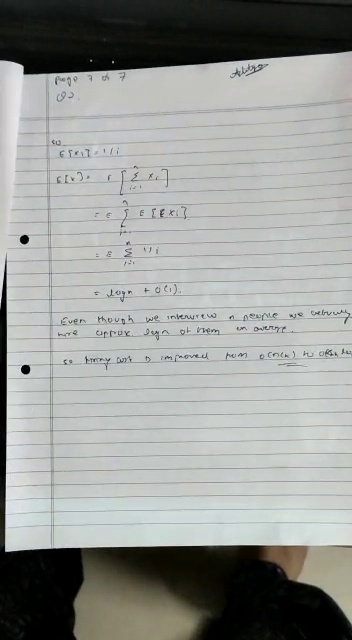 page 7 of 7
Q2.
so
E[xi] = 1/i
E[x] = E [ n Σ i=1 xi ]
= E n Σ i=1 E [ xi ]
= E n Σ i=1 1/i
= logn + O(1).
Even though we interview n people we actually
hire approx logn of them on average.
so hiring cost is improved from O(nCh) to